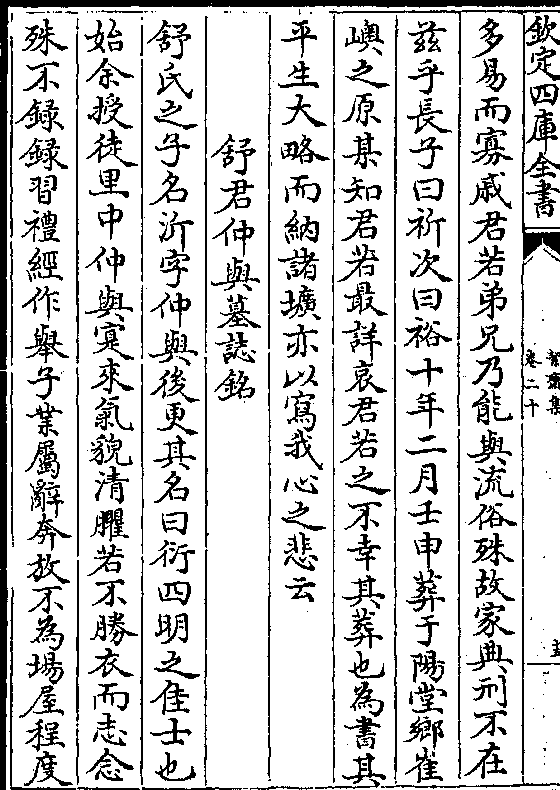 欽定四庫全書
卷二十
多易而寡戚君若弟兄乃能與流俗殊故家典刑不在
兹乎長子曰祈次曰裕十年二月壬申葬于陽堂鄉崔
㠘之原某知君若最詳哀君若之不幸其葬也為書其
平生大略而納諸壙亦以寫我心之悲云
舒君仲與墓誌銘
舒氏之子名沂字仲與後更其名曰衍四明之佳士也
始余授徒里中仲與寔來氣貌清臞若不勝衣而志念
殊不録録習禮經作舉子業屬辭奔放不為場屋程度